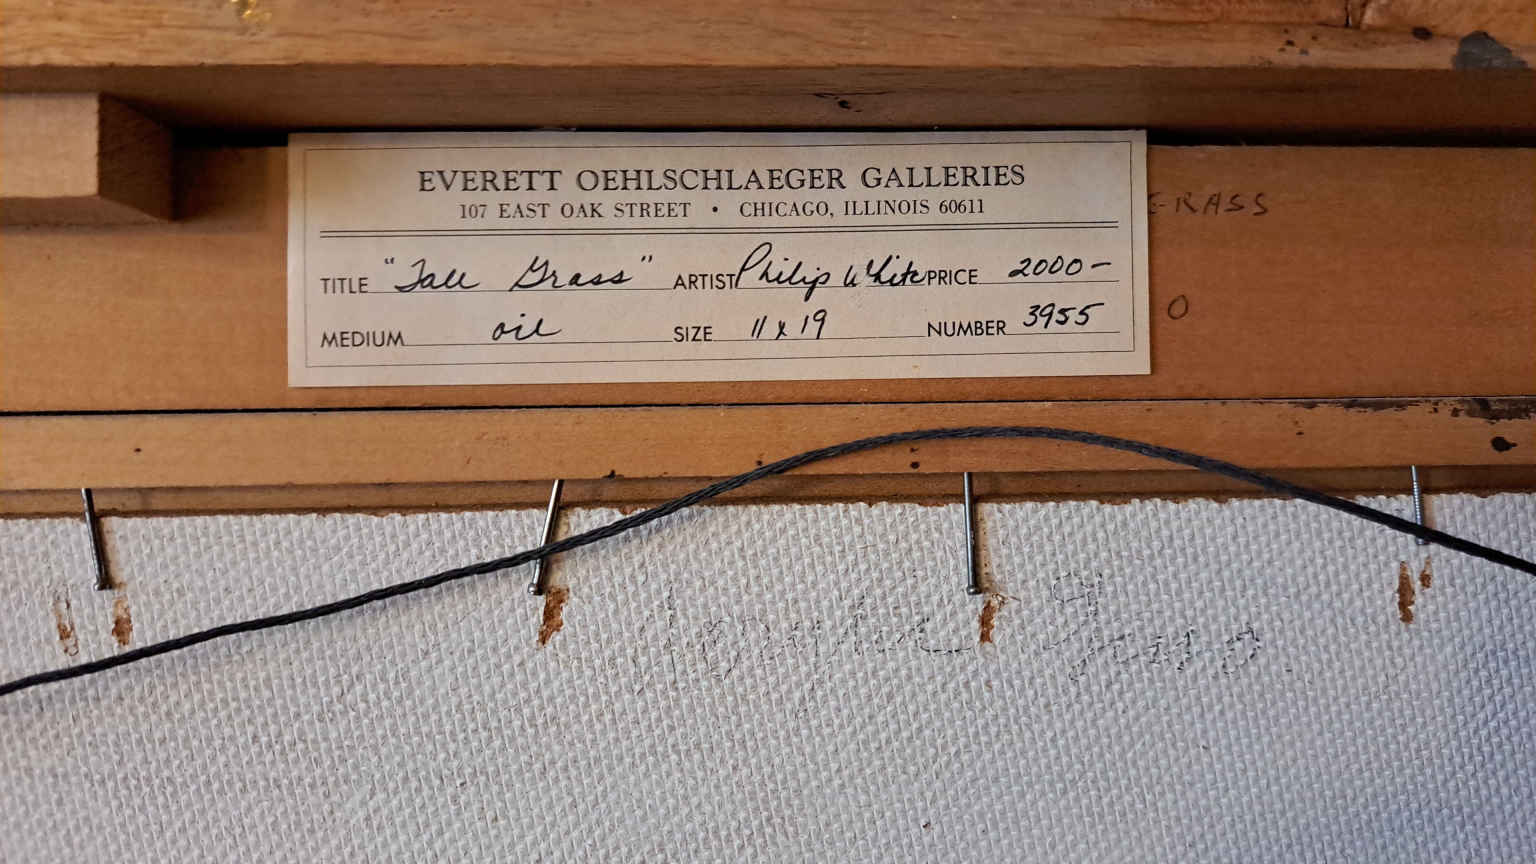 EVERETT OEHLSCHLAEGER GALLERIES
107 EAST OAK STREET • CHICAGO, ILLINOIS 60611
TITLE "Tall Grass" ARTIST Philip White PRICE 2000-
MEDIUM oil SIZE 11 x 19 NUMBER 3955
GRASS
O